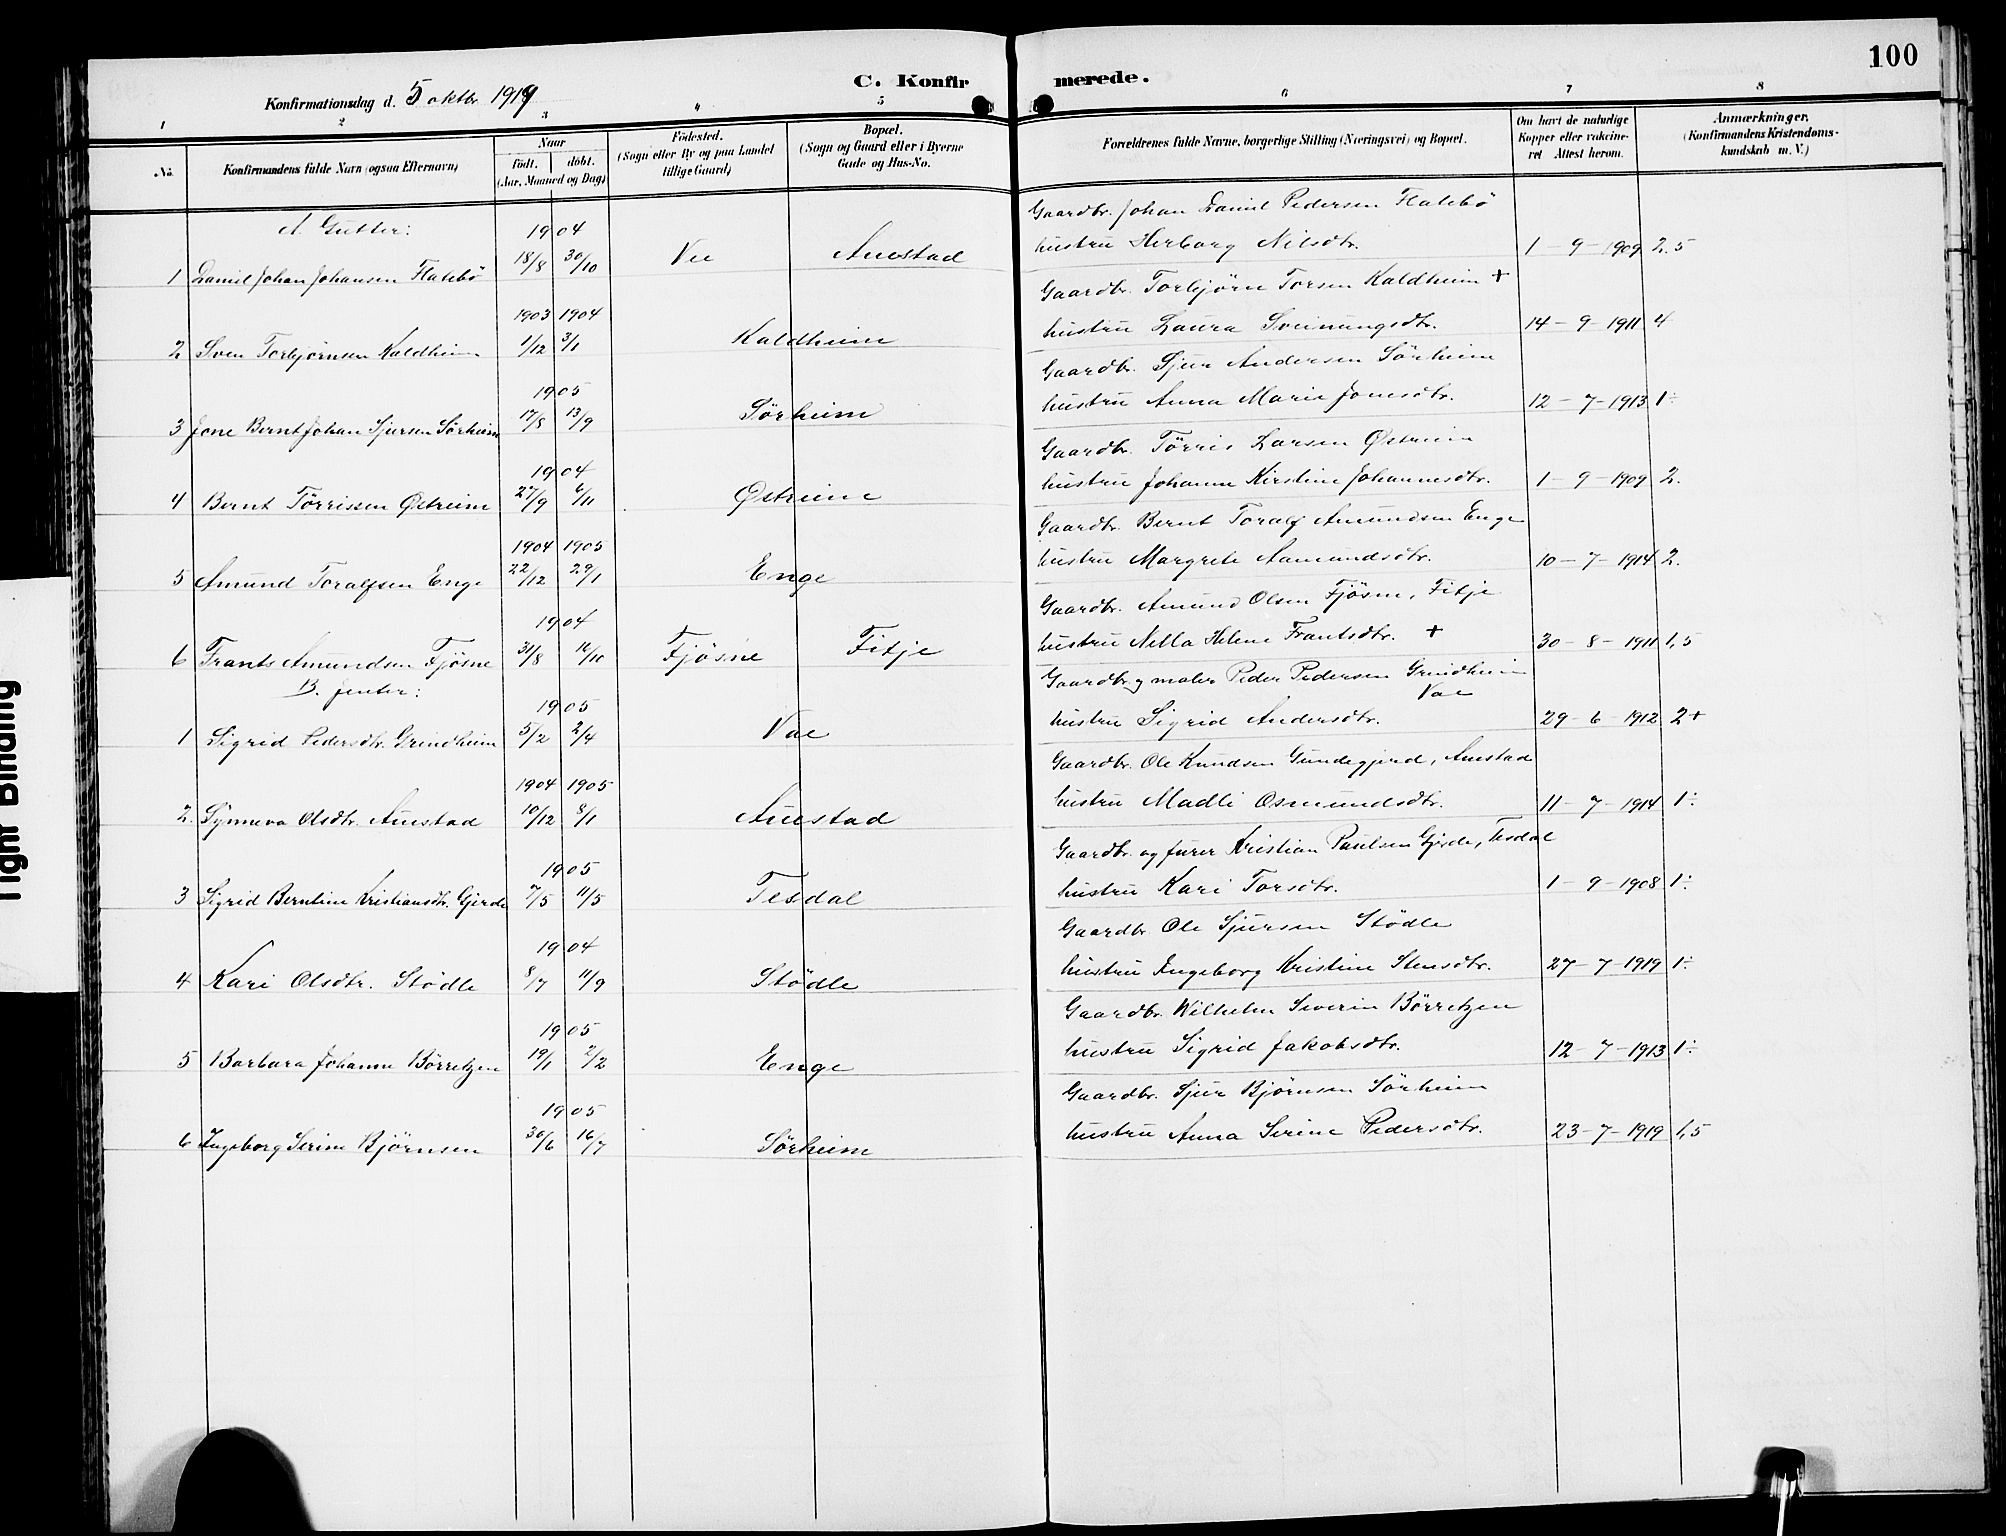 100
C. Konfirmerede.
Konfirmationsdag d. 5 oktbr 1919
1 2 3 4 5 6 7 8
No. Konfirmandens fulde Navn (ogsaa Efternavn) Naar født. døbt. (Aar, Maaned og Dag) Fødested. (Sogn eller By og paa Landet tillige Gaard) Bopæl. (Sogn og Gaard eller i Byerne Gade og Hus-No. Forældrenes fulde Navne, borgerlige Stilling (Næringsvei) og Bopæl. Om havt de naturlige Kopper eller vaccineret Attest herom. Anmærkninger. (Konfirmandens Kristendomskundskab m. V.)
A. Gutter:
1904 Gaardbr. Johan Daniel Pedersen Flatebö
1 Daniel Johan Johansen Flatebö 18/8 30/10 Vee Austad hustru Herborg Nilsdtr. 1-9-1909 2.5
1903 1904 Gaardbr. Torbjörn Torsen Kaldheim +
2 Sven Torbjørnsen Kaldheim 1/12 3/1 Kaldheim hustru Laura Sveinungsdtr. 14-9-1911 4
1905 Gaardbr. Sjur Andersen Sörheim
3 Jone Bernt Johan Sjursen Sörheim 17/8 13/9 Sørheim hustru Anna Marie Jonesdtr. 12-7-1913 1÷
1904 Gaardbr. Tørris Larsen Østreim
4 Bernt Tørrissen Østreim 27/9 6/11 Østreim hustru Johanne Kirstine Johannesdtr. 1-9-1909 2.
1904 1905 Gaardbr. Bernt Toralf Amundsen Enge
5 Amund Toralfsen Enge 22/12 29/1 Enge hustru Margrete Aamundsdtr. 10-7-1914 2.
1904 Gaardbr. Amund Olsen Fjösne, Fitje
6 Frants Amundsen Fjøsne 31/8 16/10 Fjøsne Fitje hustru Nella Helene Frantsdtr. + 30-8-1911 1,5
B. Jenter:
1905 Gaardbr. og maler Peder Pedersen Grindheim Vae
1 Sigrid Pedersdtr. Grindheim 5/2 2/4 Vae hustru Sigrid Andersdtr. 29-6-1912 2+
1904 1905 Gaardbr. Ole Knudsen Gundegjerd, Austad
2. Synneva Olsdtr. Austad 10/12 8/1 Austad hustru Madli Osmundsdtr. 11-7-1914 1÷
1905 Gaardbr. og furer Kristian Paulsen Gjerde, Tesdal
3 Sigrid Berntine Kristiansdtr. Gjerde 7/5 11/5 Tesdal hustru Kari Torsdtr. 1-9-1908 1÷
1904 Gaardbr. Ole Sjursen Stödle
4 Kari Olsdtr. Stødle 8/7 11/9 Stødle hustru Ingeborg Kristine Stensdtr. 27-7-1919 1÷
1905 Gaardbr. Wilhelm Severin Börretzen
5 Barbara Johanne Börretzen 19/1 2/2 Enge hustru Sigrid Jakobsdtr. 12-7-1913 1÷
1905 Gaardbr. Sjur Bjørnsen Sørheim
6 Ingeborg Serine Bjørnsen 30/6 16/7 Sørheim hustru Anna Serine Pedersdtr. 23-7-1919 1,5
Tight Binding